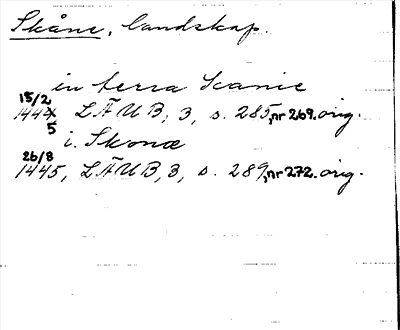 Skåne, landskap.
in terra Scanie
15/2
1444, LÄUB, 3, s. 285, nr 269. orig.
5
i. Skonæ
26/8
1445, LÄUB, 3, s. 289, nr 272. orig.